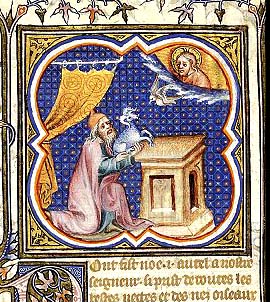 Dont fist noe .i. autel a nostre
seigneur si prist de toutes les
bestes netes et des oiseaux